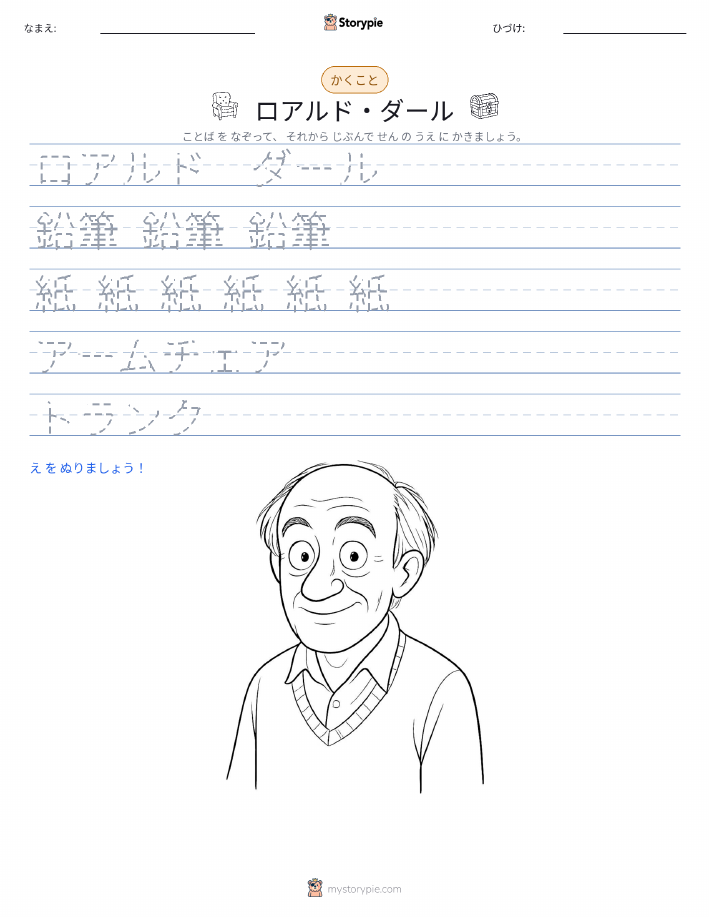 なまえ:
Storypie
ひづけ:
かくこと
ロアルド・ダール
ことば を なぞって、 それから じぶんで せん の うえ に かきましょう。
ロアルド　ダール
鉛筆 鉛筆 鉛筆
紙 紙 紙 紙 紙 紙
アームチェア
トランク
え を ぬりましょう！
mystorypie.com